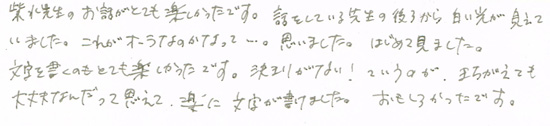 柴礼先生のお話がとても楽しかったです。話をしている先生の後ろから白い光が見えて
いました。これがオーラなのかなって…。思いました。はじめて見ました。
文字を書くのもとても楽しかったです。決まりがない!っていうのが、まちがえても
大丈夫なんだって思えて、楽に文字が書けました。おもしろかったです。